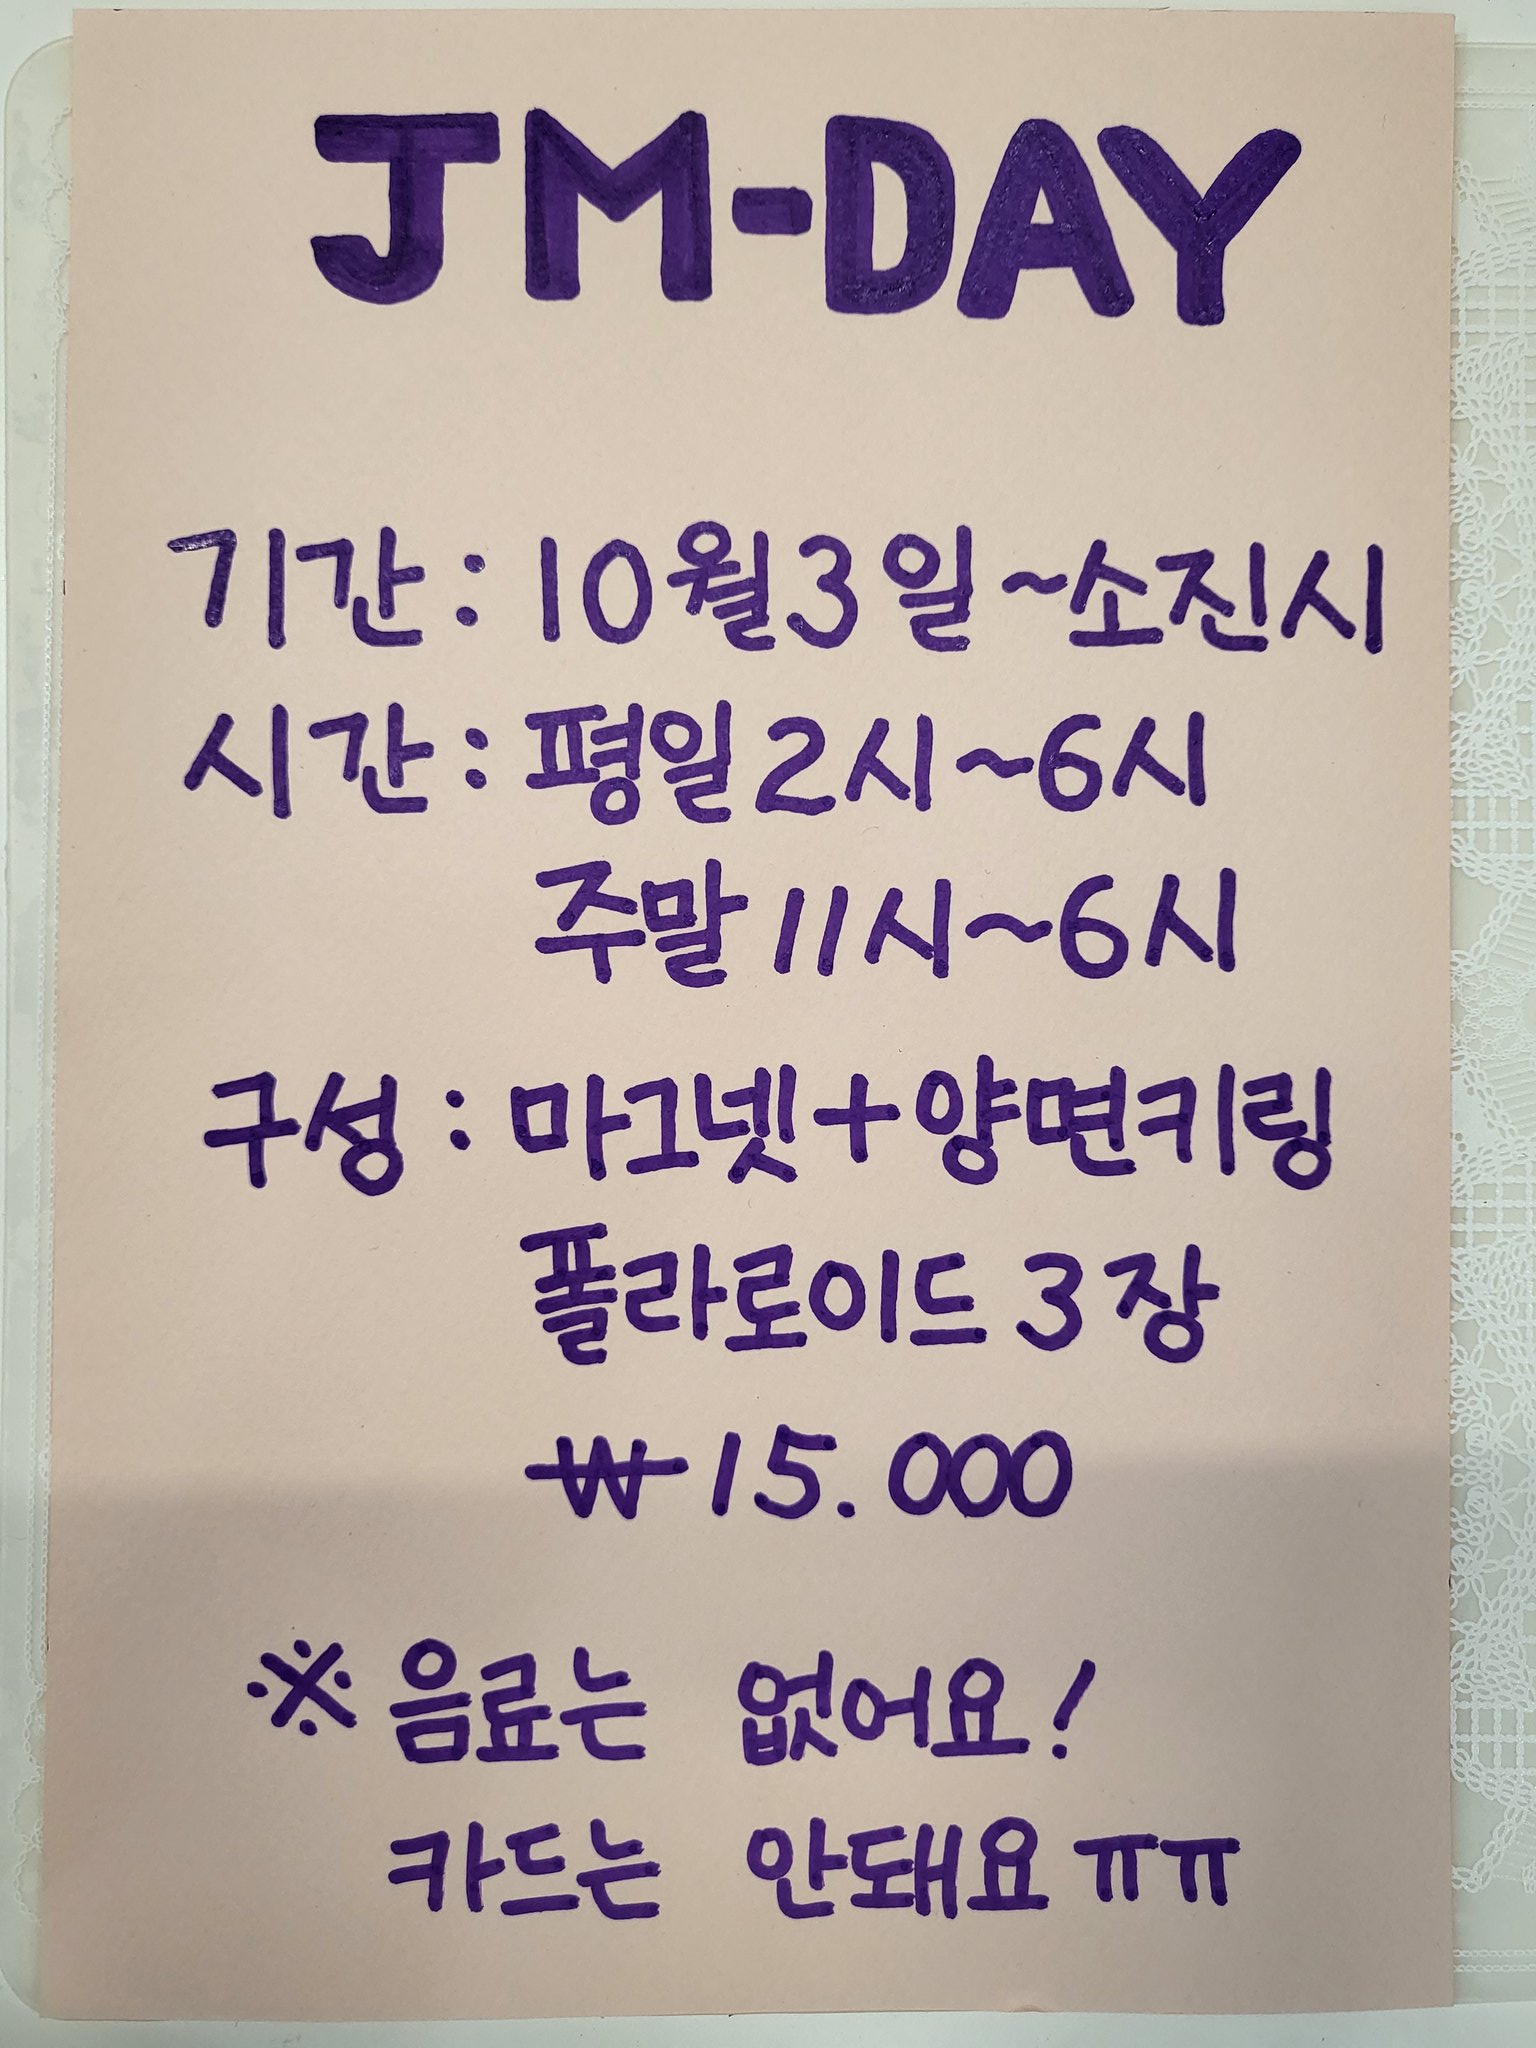 JM-DAY
기간 : 10월3일~소진시
시간 : 평일2시~6시
주말 11시~6시
구성 : 마그넷+양면키링
폴라로이드 3장
₩15.000
※ 음료는 없어요!
카드는 안돼요ㅠㅠ